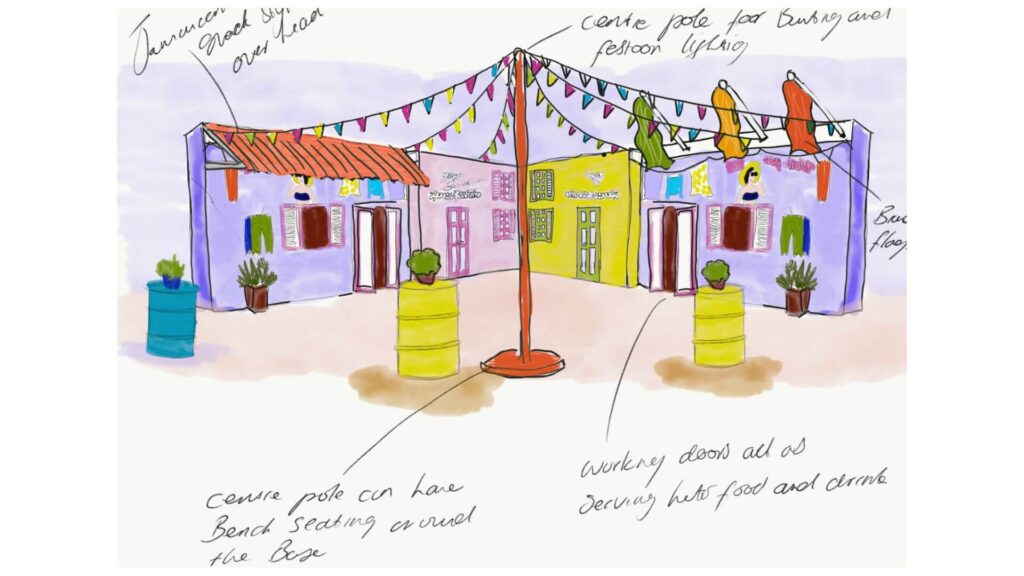 Jamaican
shack style
over head
centre pole for Bunting and
festoon lighting
flag
centre pole can have
Bench seating around
the Base
working doors act as
serving huts food and drink